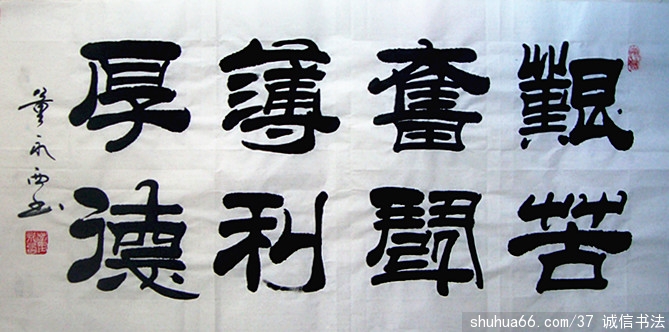 艱苦
奮鬥
薄利
厚德
董永西书
shuhua66.com/37 诚信书法